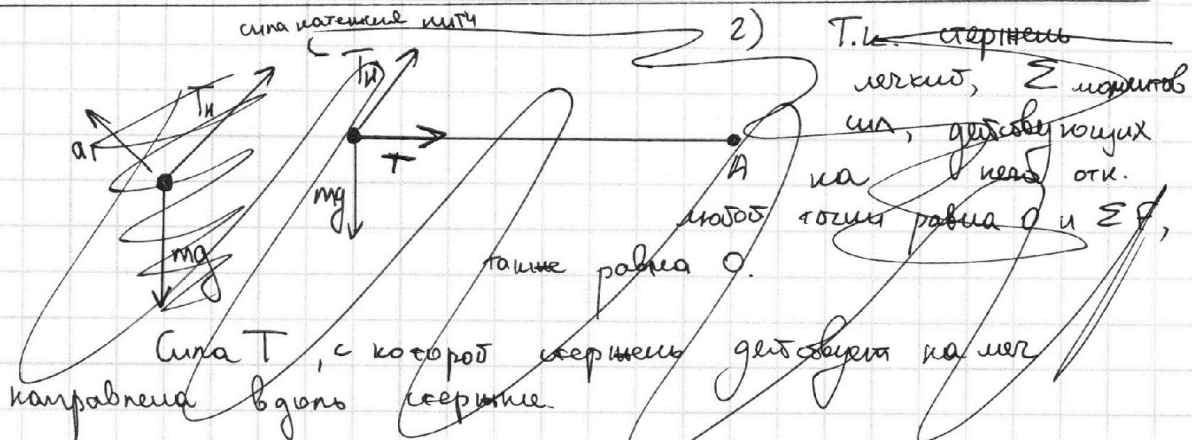 сила натяжения нити
2) Т.к. стержень
легкий, Σ моментов
сил, действующих
на него отн.
любой точки равна 0 и Σ F,
также равна 0.
Tн
a
mg
Tн
T
mg
A
Сила T, с которой стержень действует на мяч
направлена вдоль стержня.